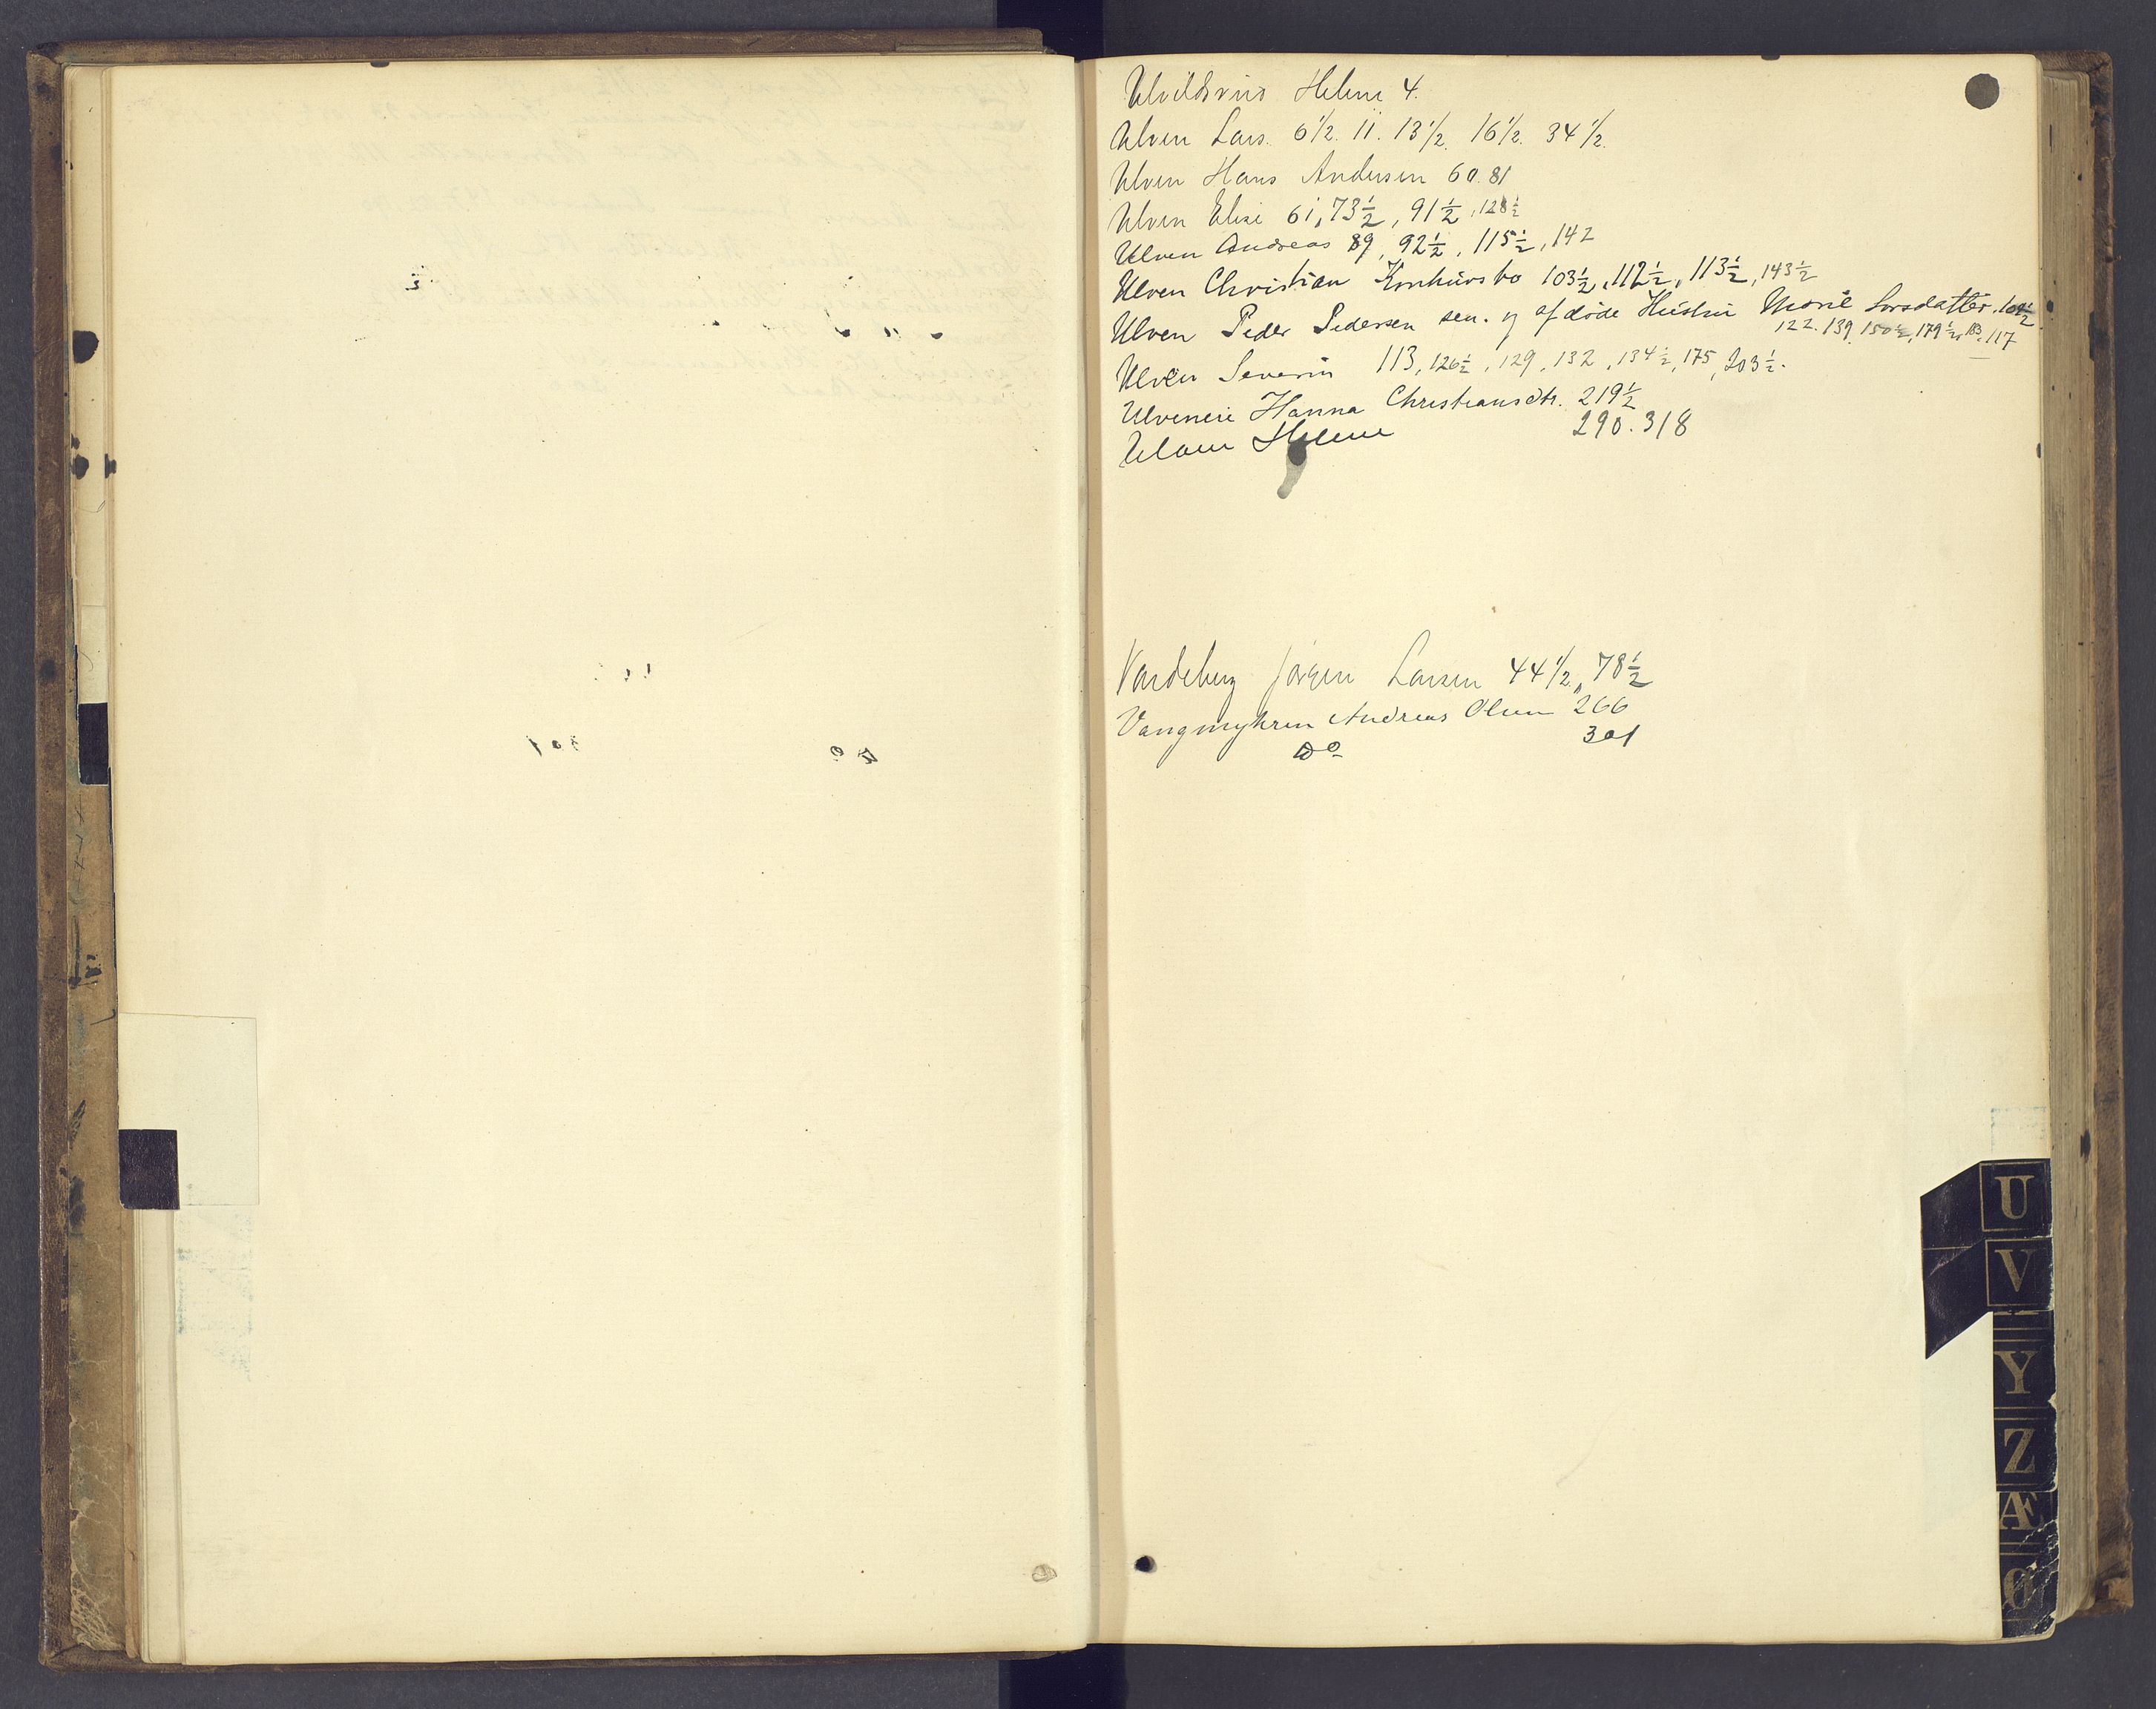 Ulvildsrud Helene 4.
Ulven Lars. 6 1/2. 11. 13 1/2. 16 1/2. 34 1/2.
Ulven Hans Andersen 60. 81
Ulven Elise 61, 73 1/2, 91 1/2, 128 1/2
Ulven Andreas 89, 92 1/2, 115 1/2, 142
Ulven Christian Konkursbo 103 1/2, 112 1/2, 113 1/2, 143 1/2
Ulven Peder Pedersen sen. og afdøde Hustru Marie Larsdatter. 108 1/2
122. 139. 150 1/2, 179 1/2, 183. 117
Ulven Severin 113, 126 1/2, 129, 132, 134 1/2, 175, 203 1/2.
Ulveneie Hanna Christiansdtr. 219 1/2
Ulven Helene 290. 318
Vardeberg Jørgen Larsen 44 1/2, 78 1/2
Vangmyhren Andreas Olsen 266
Do 301
U
V
Y
Z
Æ
Ø